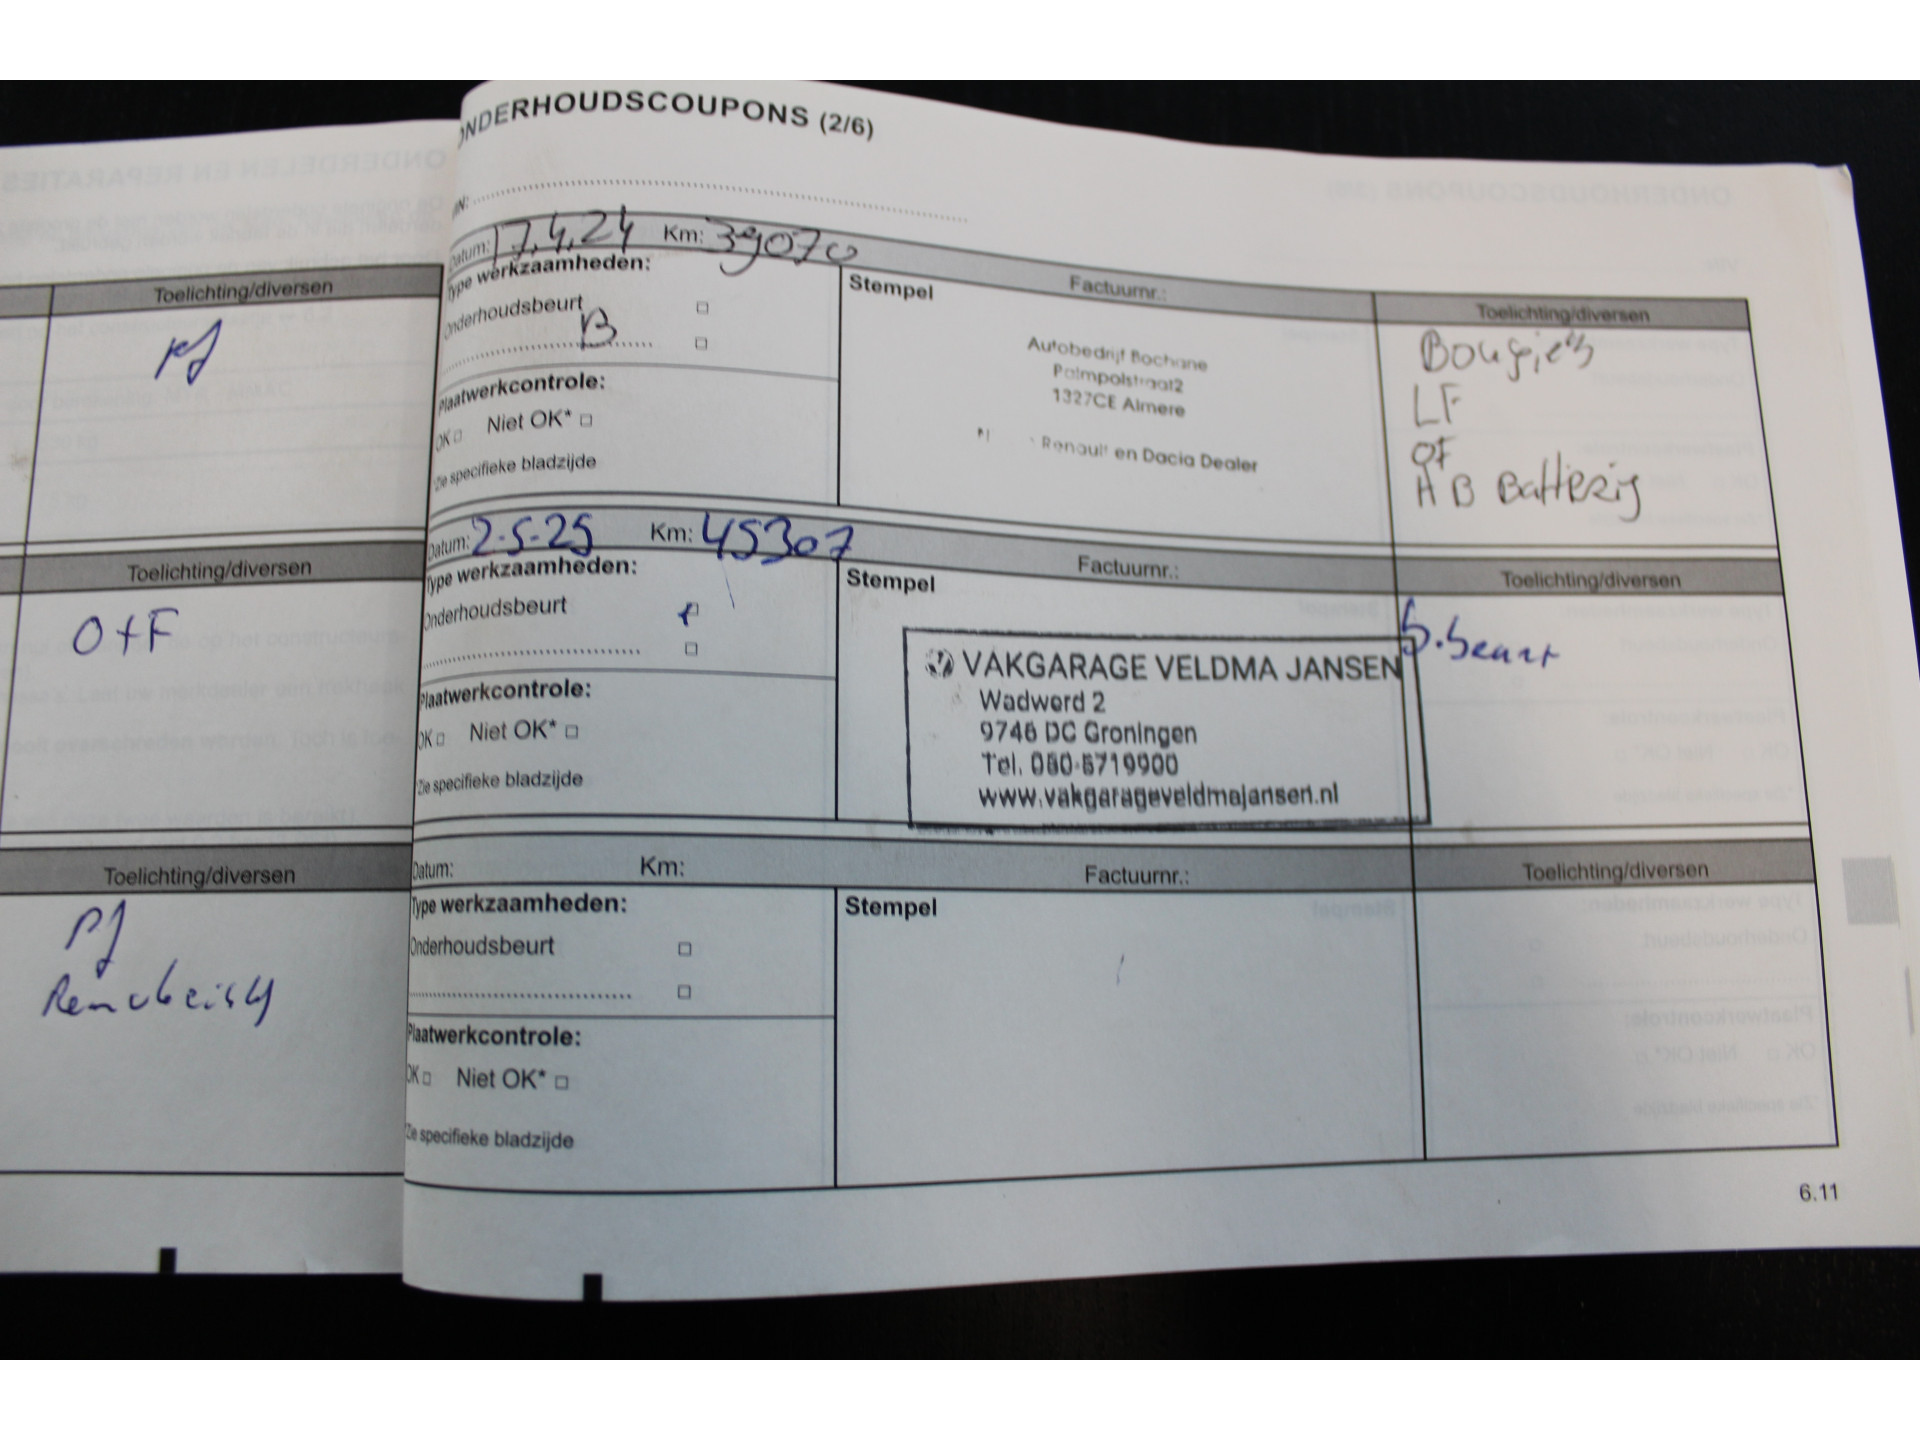 Toelichting/diversen
Toelichting/diversen
O+F
Toelichting/diversen
ONDERHOUDSCOUPONS (2/6)
Datum: 17.4.24 Km: 39070 Factuurnr.: Toelichting/diversen
Type werkzaamheden: Stempel
Onderhoudsbeurt
B
Plaatwerkcontrole:
OK Niet OK*
*Zie specifieke bladzijde
Autobedrijf Bochane
Palmpolstraat2
1327CE Almere
Renault en Dacia Dealer
Bougie's
LF
OF
AB Batterij
Datum: 2-5-25 Km: 45307 Factuurnr.: Toelichting/diversen
Type werkzaamheden: Stempel
Onderhoudsbeurt
Plaatwerkcontrole:
OK Niet OK*
*Zie specifieke bladzijde
VAKGARAGE VELDMA JANSEN
Wadwerd 2
9746 DC Groningen
Tel. 050-5719900
www.vakgarageveldmajansen.nl
Datum: Km: Factuurnr.: Toelichting/diversen
Type werkzaamheden: Stempel
Onderhoudsbeurt
Plaatwerkcontrole:
OK Niet OK*
*Zie specifieke bladzijde
6.11